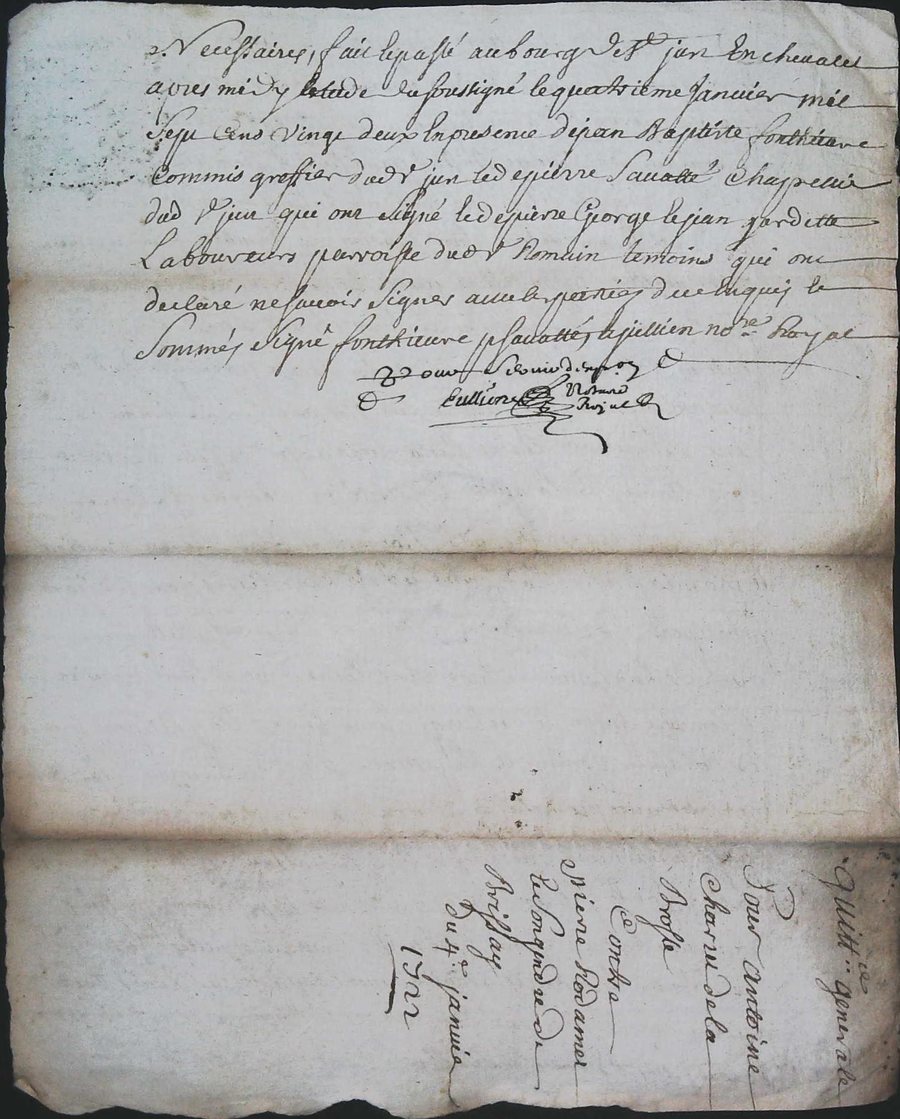 Necessaires, fait et passé au bourg de St jun en chevalet
apres midy etude du soussigné le quatrieme Janvier mil
Sept cens vingt deux en presence de jean Baptiste fonthieure
Commis greffier dud St jun et de pierre Savatté Chapellie
dud St jun qui ont signé et de pierre George et jean jardette
Laboureurs parroisse dud St Romain temoins qui ont
declaré ne savoir signer avec les parties de ce enquis et
Sommés signé fonthieure p savattés et jullien nore Royal
Pour
Jullien
Notaire
Royal
Quittce generale
Pour antoine
Charret de la
Brosse
Contre
Pierre
et
Brissay
du 4e janvie
1722